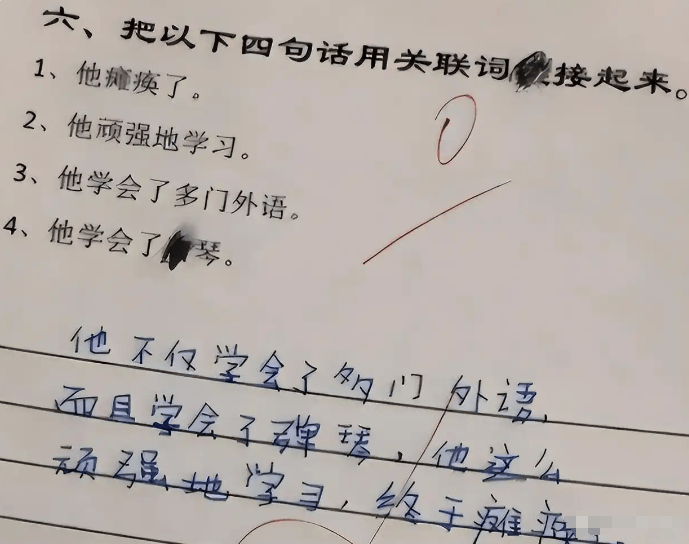 六、把以下四句话用关联词接起来。
1、他瘫痪了。
2、他顽强地学习。
3、他学会了多门外语。
4、他学会了琴。
0
他不仅学会了多门外语，
而且学会了弹琴，他这么
顽强地学习，终于瘫痪